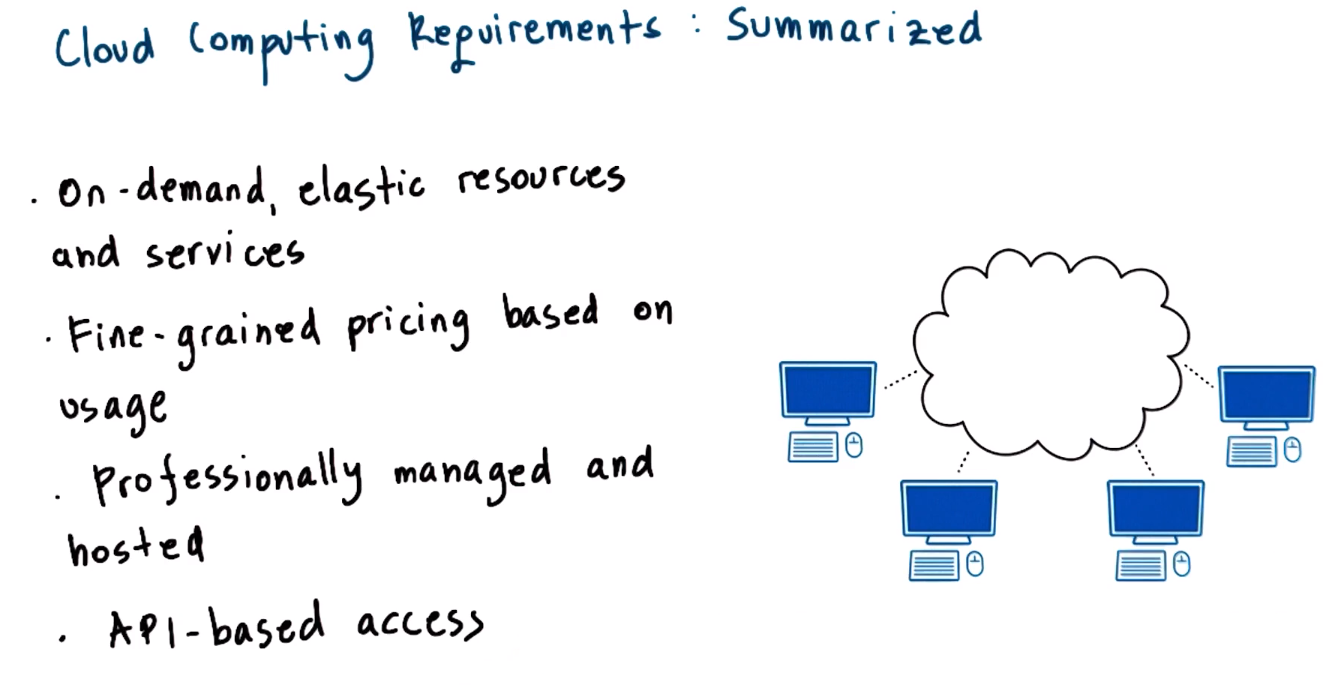 Cloud Computing Requirements : Summarized
· On-demand, elastic resources
and services
· Fine-grained pricing based on
usage
· Professionally managed and
hosted
· API-based access